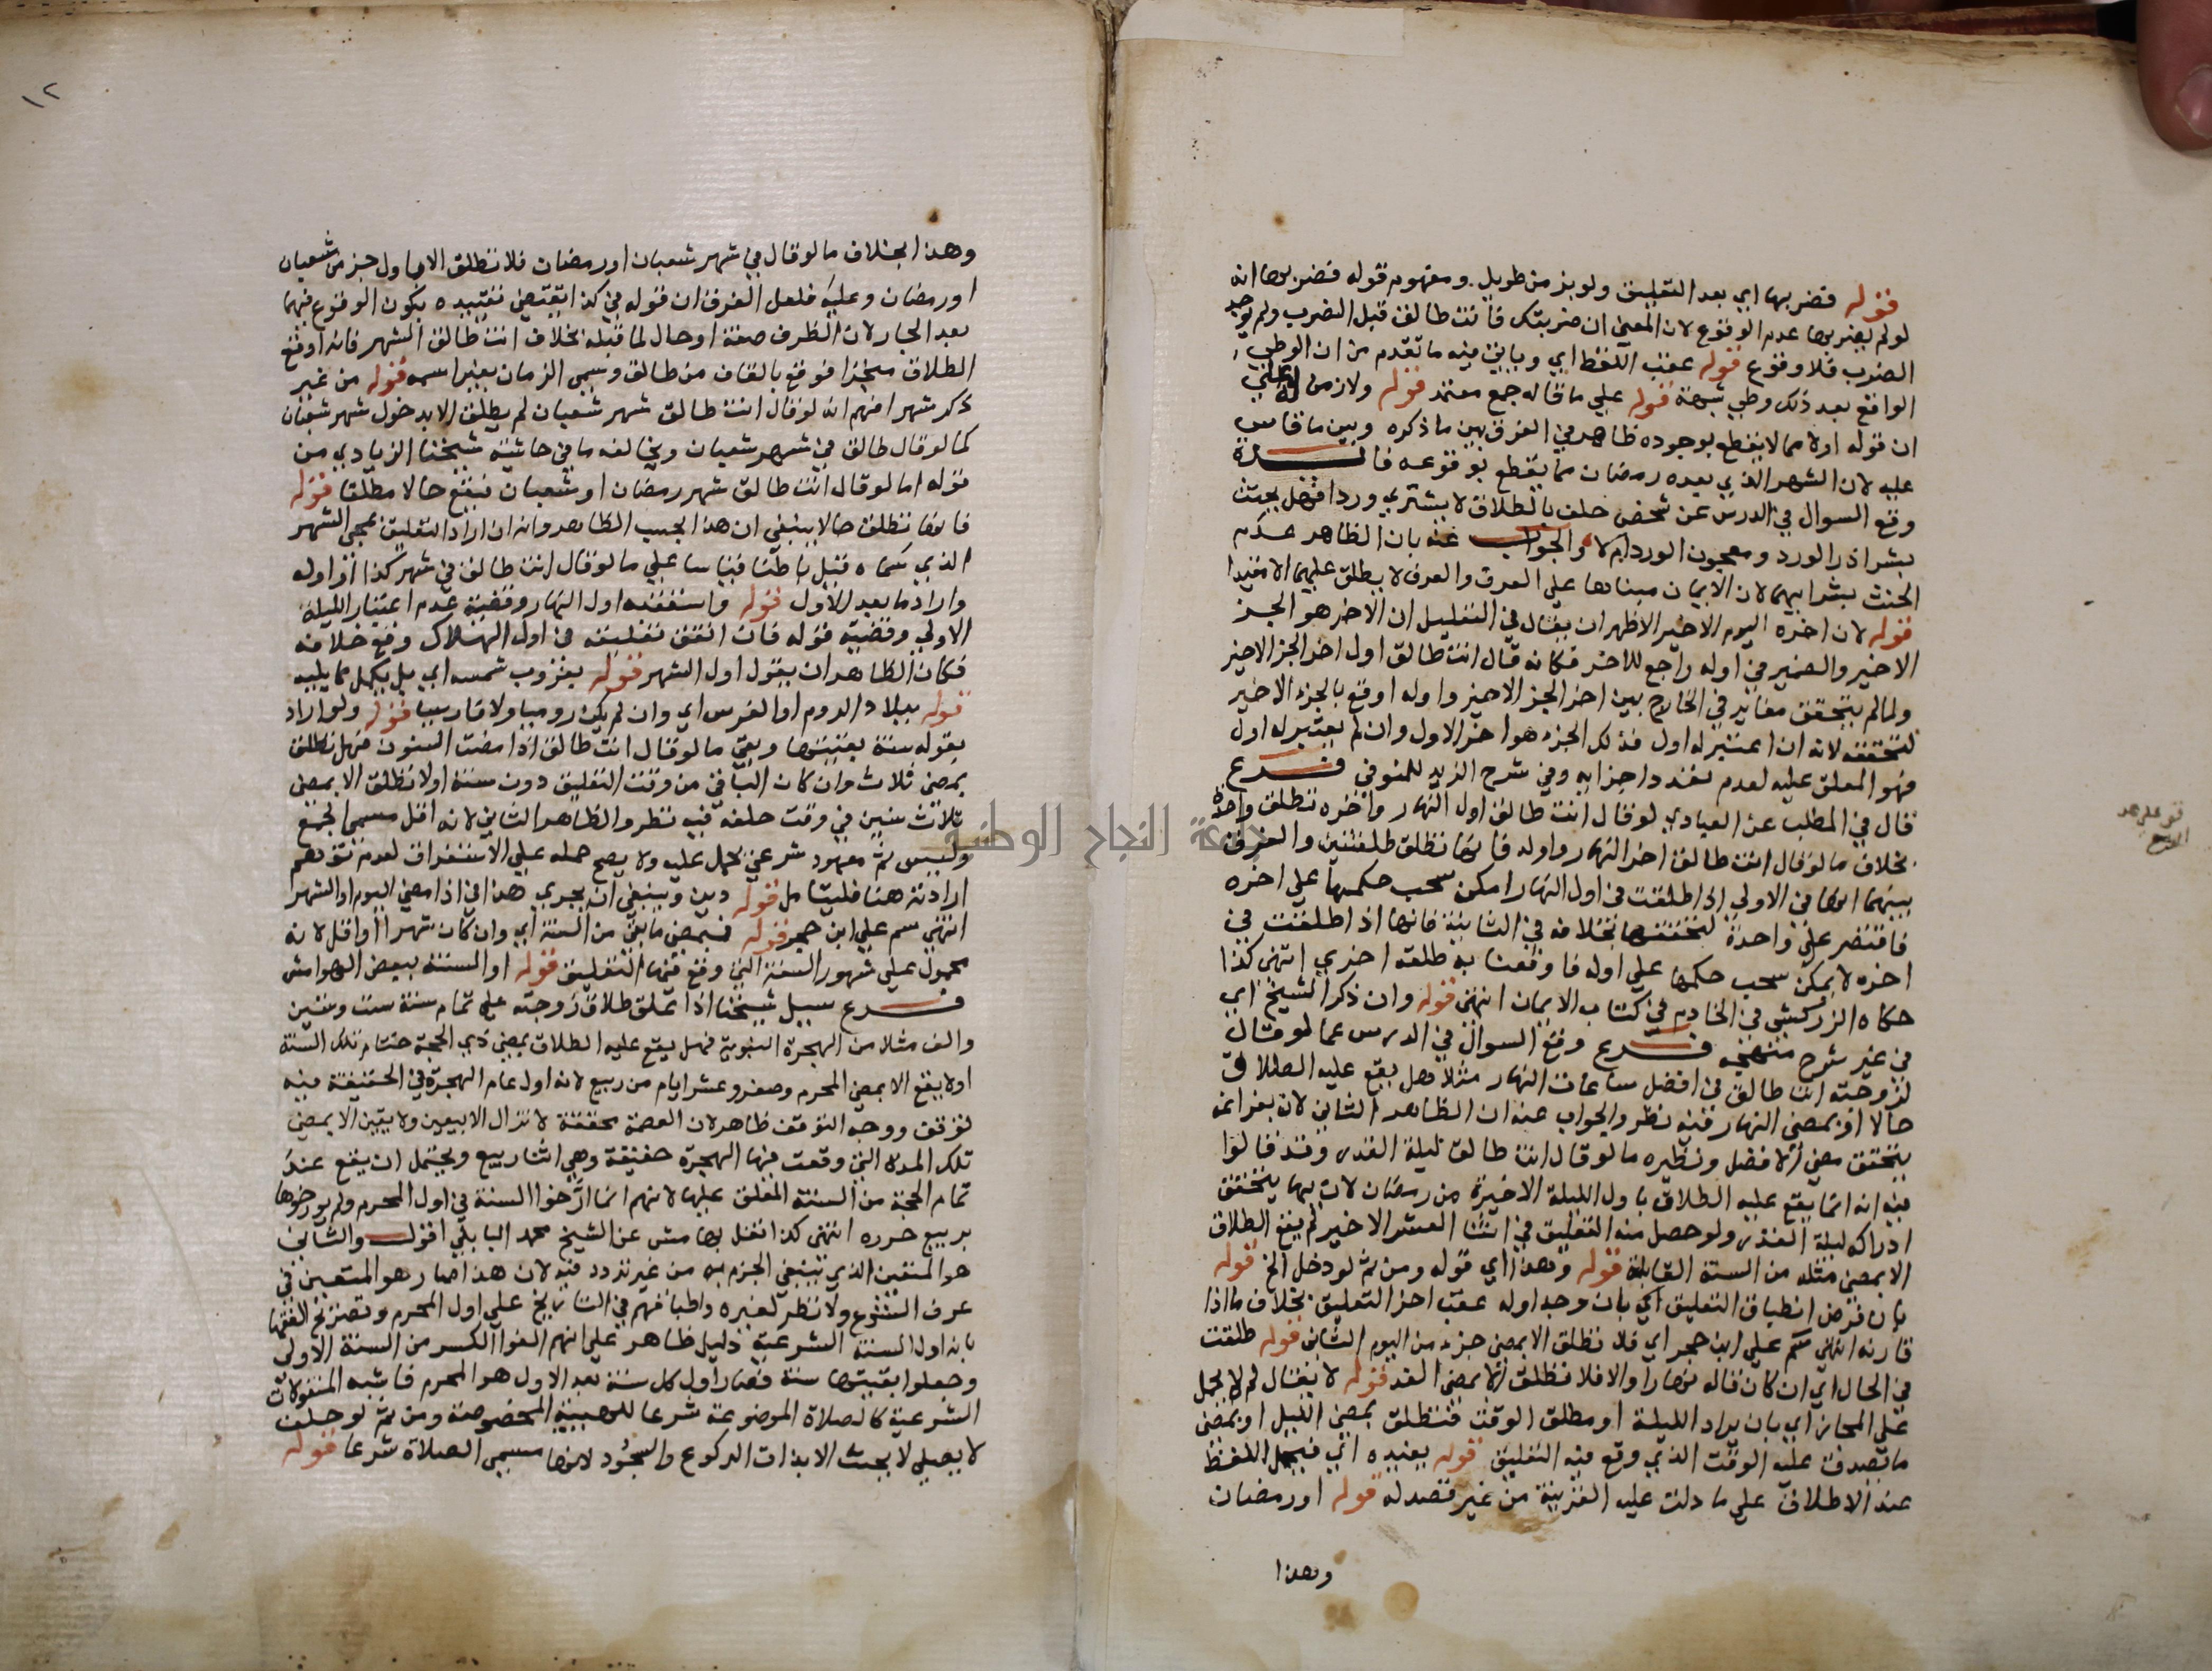 قوله فضربها اي بعد التعليق ولو بزمن طويل ومفهوم قوله فضربها انه
لو لم يضربها عدم الوقوع لان المعنى ان ضربتك فانت طالق قبل الضرب ولم يوجد
الضرب فلا وقوع قوله عقب اللفظ اي وياتي فيه ما تقدم من ان الوطي
الواقع بعد ذلك وطي شبهة قوله علي ما قاله جمع معتمد قوله ولا زمن
ان قوله اولا مما لا يقطع بوجوده ظاهر في الفرق بين ما ذكره وبين ما قاس
عليه لان الشهر الذي بعده رمضان مما يقطع بوقوعه فائدة
وقع السوال في الدرس عن شخص حلف بالطلاق لا يشتري وردا فهل يحنث
بشرا زر الورد ومعجون الورد ام لا والجواب عنه بان الظاهر عدم
الحنث بشرايهما لان الايمان مبناها علي العرف والعرف لا يطلق عليهما الا مقيدا
قوله لان اخره اليوم الاخير الاظهر ان يقال في التعليل ان الاخر هو الجز
الاخير والضمير في اوله راجع للاخر فكانه قال انت طالق اول اخر الجز الاخير
ولما لم يتحقق مغاير في الخارج بين اخر الجز الاخير واوله اوقع بالجزء الاخير
لتحققه لانه ان اعتبر له اول فذلك الجزء هو اخر الاول وان لم يعتبر له اول
فهو المعلق عليه لعدم تعدد اجزايه وفي شرح الزبد للمنوفي فرع
قال في المطلب عن العبادي لو قال انت طالق اول النهار واخره تطلق واحدة
بخلاف ما لو قال انت طالق اخر النهار واوله فانها تطلق طلقتين والفرق
بينهما انها في الاولي اذا طلقت في اول النهار امكن سحب حكمها علي اخره
فاقتصر علي واحدة لتحققها بخلافه في الثانية فانها اذا طلقت في
اخره لا يمكن سحب حكمها علي اوله فاوقعنا به طلقة اخري انتهي كذا
حكاه الزركشي في الخادم في كتاب الايمان انتهي قوله وان ذكر الشيخ اي
في غير شرح منهجه فرع وقع السوال في الدرس عما لو قال
لزوجته انت طالق في افضل ساعات النهار مثلا هل يقع عليه الطلاق
حالا او بمضي النهار فيه نظر والجواب عنه ان الظاهر الثاني لان بفراغه
يتحقق مضي الافضل ونظيره ما لو قال انت طالق ليلة القدر وقد قالوا
فيه انه انما يقع عليه الطلاق باول الليلة الاخيرة من رمضان لان بها يتحقق
ادراكه ليلة القدر ولو حصل منه التعليق في اثنا العشر الاخير لم يقع الطلاق
الا بمضي مثله من السنة القابلة قوله وهذا اي قوله ومن ثم لو دخل الخ قوله
بان فرض انطباق التعليق اي بان وجد اوله عقب اخر التعليق بخلاف ما اذا
قارنه انتهي سم علي ابن حجر اي فلا تطلق الا بمضي جزء من اليوم الثاني قوله طلقت
في الحال اي ان كان قاله نهارا والا فلا تطلق الا بمضي الغد قوله لا يقال لم لا يحمل
علي المجاز اي بان يراد الليلة او مطلق الوقت فتطلق بمضي الليل او بمضي
ما تصدق عليه الوقت الذي وقع فيه التعليق قوله بعيده اي فيحمل اللفظ
عند الاطلاق علي ما دلت عليه القرينة من غير قصد له قوله او رمضان
وهذا
١٢
وهذا بخلاف ما لو قال في شهر شعبان او رمضان فلا تطلق الا باول جز من شعبان
او رمضان وعليه فلعل الفرق ان قوله في كذا يقتضي تقييده بكون الوقوع فيهما
بعد الجار لان الظرف صفة او حال لما قبله بخلاف انت طالق الشهر فانه اوقع
الطلاق منجزا فوقع بالقاف من طالق وسمي الزمان بغير اسمه قوله من غير
ذكر شهر افهم انه لو قال انت طالق شهر شعبان لم يطلق الا بدخول شهر شعبان
كما لو قال طالق في شهر شعبان ويخالفه ما في حاشية شيخنا الزيادي من
قوله اما لو قال انت طالق شهر رمضان او شعبان فيقع حالا مطلقا قوله
فانها تطلق حالا ينبغي ان هذا بحسب الظاهر وانه ان اراد التعليق بمجي الشهر
الذي سماه قبل باطنا قياسا علي ما لو قال انت طالق في شهر كذا او اوله
واراد ما بعد الاول قوله واستفده اول النهار وقضية عدم اعتبار الليلة
الاولي وقضية قوله فان اتفق تعليقه في اول الهلال وقع خلافه
فكان الظاهر ان يقول اول الشهر قوله بغروب شمسه اي بل يكمل مما يليه
قوله ببلاد الروم او الفرس اي وان لم يكن روميا ولا فارسيا قوله ولو اراد
بقوله سنة بقيتها وبقي ما لو قال انت طالق اذا مضت السنون فهل تطلق
بمضي ثلاث وان كان الباقي من وقت التعليق دون سنة او لا تطلق الا بمضي
ثلاث سنين في وقت حلفه فيه نظر والظاهر الثاني لانه اقل مسمى الجمع
وليس ثم معهود شرعي يحمل عليه ولا يصح حمله علي الاستغراق لعدم توهم
ارادته هنا فليتامل قوله دين وينبغي ان يجري هذا في اذا مضي اليوم او الشهر
انتهي سم علي ابن حجر قوله فبمضي ما بقي من السنة اي وان كان شهرا او اقل لانه
محمول علي شهور السنة التي وقع فيها التعليق قوله او السنة ببعض الهوامش
فرع سيل شيخنا اذا علق طلاق زوجته علي تمام سنة ست وستين
والف مثلا من الهجرة النبوية فهل يقع عليه الطلاق بمضي ذي الحجة ختام تلك السنة
او لا يقع الا بمضي المحرم وصفر وعشر ايام من ربيع لانه اول عام الهجرة في الحقيقة فيه
توقف ووجه التوقف ظاهر لان العصمة محققة لا تزال الا بيقين ولا يقين الا بمضي
تلك المدة التي وقعت فيها الهجرة حقيقة وهي اثنا ربيع ويحتمل ان يقع عند
تمام الحجة من السنة المعلق عليها لانهم انما ارخوا السنة في اول المحرم ولم يورخوها
بربيع حرره انتهي كذا نقل بهامش عن الشيخ محمد البابلي اقول والثاني
هو المتعين الذي ينبغي الجزم به من غير تردد فيه لان هذا صار هو المتعين في
عرف الشرع ولا نظر لغيره واطباقهم في التاريخ علي اول المحرم وتصريح الفقها
بانه اول السنة الشرعية دليل ظاهر علي انهم الغوا الكسر من السنة الاولي
وجعلوا بقيتها سنة فصار اول كل سنة بعد الاول هو المحرم فاشبه المنقولات
الشرعية كالصلاة الموضوعة شرعا للهيئة المخصوصة ومن ثم لو حلف
لا يصلي لا يحنث الا بذات الركوع والسجود لانها مسمى الصلاة شرعا قوله
جامعة النجاح الوطنية